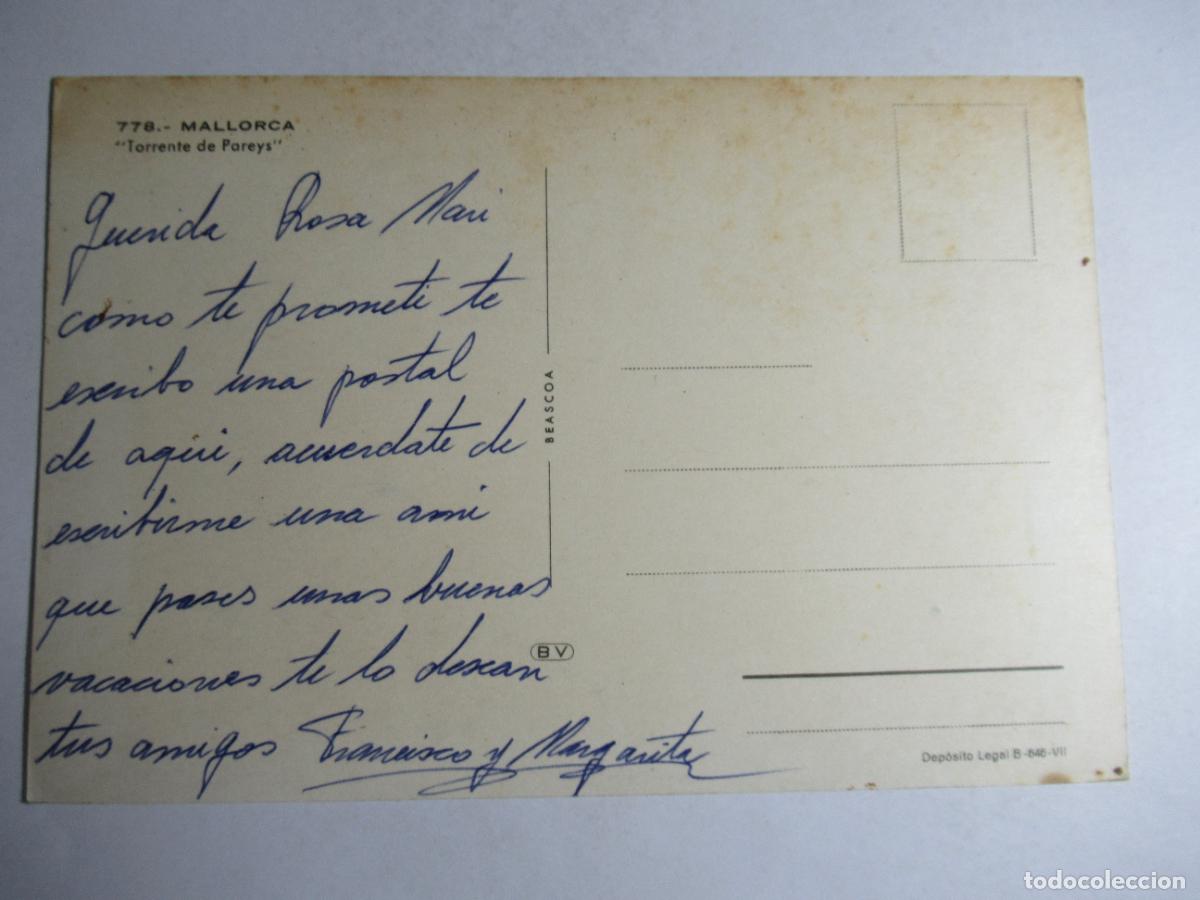 778.- MALLORCA
"Torrente de Pareys"
Querida Rosa Mari
como te prometi te
escribo una postal
de aqui, acuerdate de
escribirme una ami
que pases unas buenas
vacaciones te lo desean
tus amigos Francisco y Margarita
BEASCOA
BV
Depósito Legal B-646-VII
todocoleccion